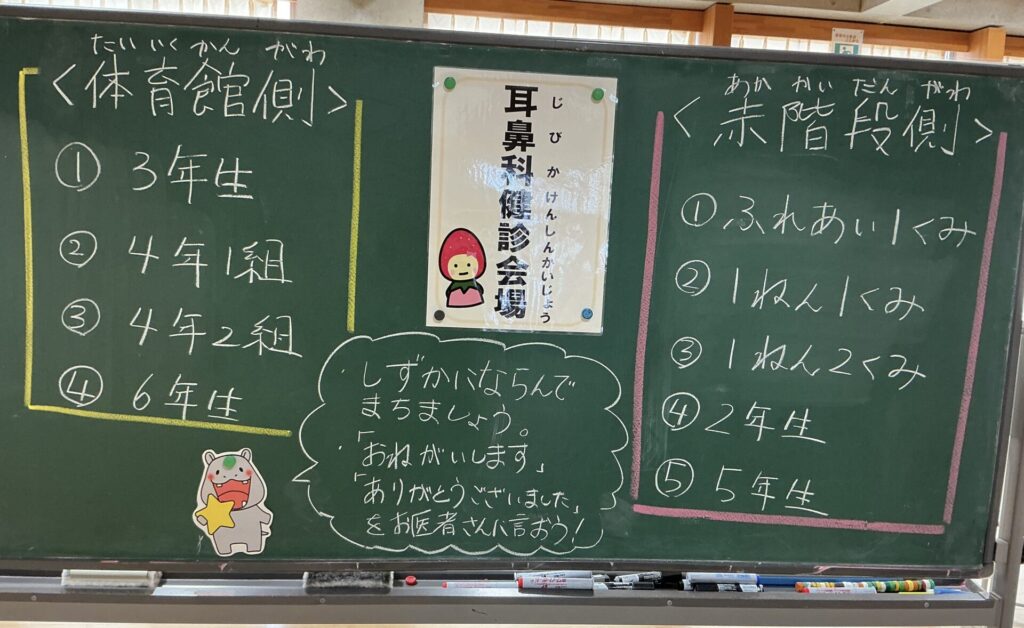 たいいくかんがわ
<体育館側>
① 3年生
② 4年1組
③ 4年2組
④ 6年生
じびかけんしんかいじょう
耳鼻科健診会場
・しずかにならんで
まちましょう。
・「おねがいします」
「ありがとうございました」
をお医者さんに言おう!
あかかいだんがわ
<赤階段側>
① ふれあい1くみ
② 1ねん1くみ
③ 1ねん2くみ
④ 2年生
⑤ 5年生